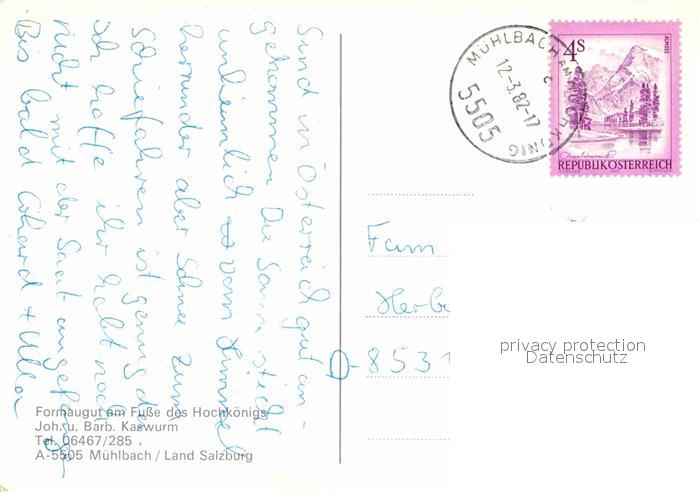 Sind in Österreich gut an-
gekommen. Die Sonne sticht
unheimlich vom Himmel
herunder aber Schnee zum
Schiefahren ist genug da.
Ich hoffe ihr habt noch
nicht mit der Saat angefangen
Bis bald Erhard + Ulla
Formaugut am Fuße des Hochkönigs
Joh. u. Barb. Kaswurm
Tel. 06467/285
A-5505 Mühlbach / Land Salzburg
MÜHLBACH AM HOCHKÖNIG
c
12-3.82-17
5505
4S
ALMSEE
REPUBLIK ÖSTERREICH
Fam
Herbe
D-8531
privacy protection
Datenschutz